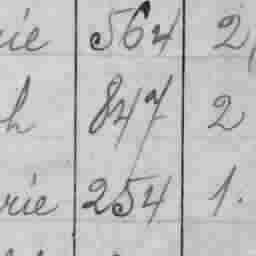 rie 564 2,
h 847 2
rie 254 1.